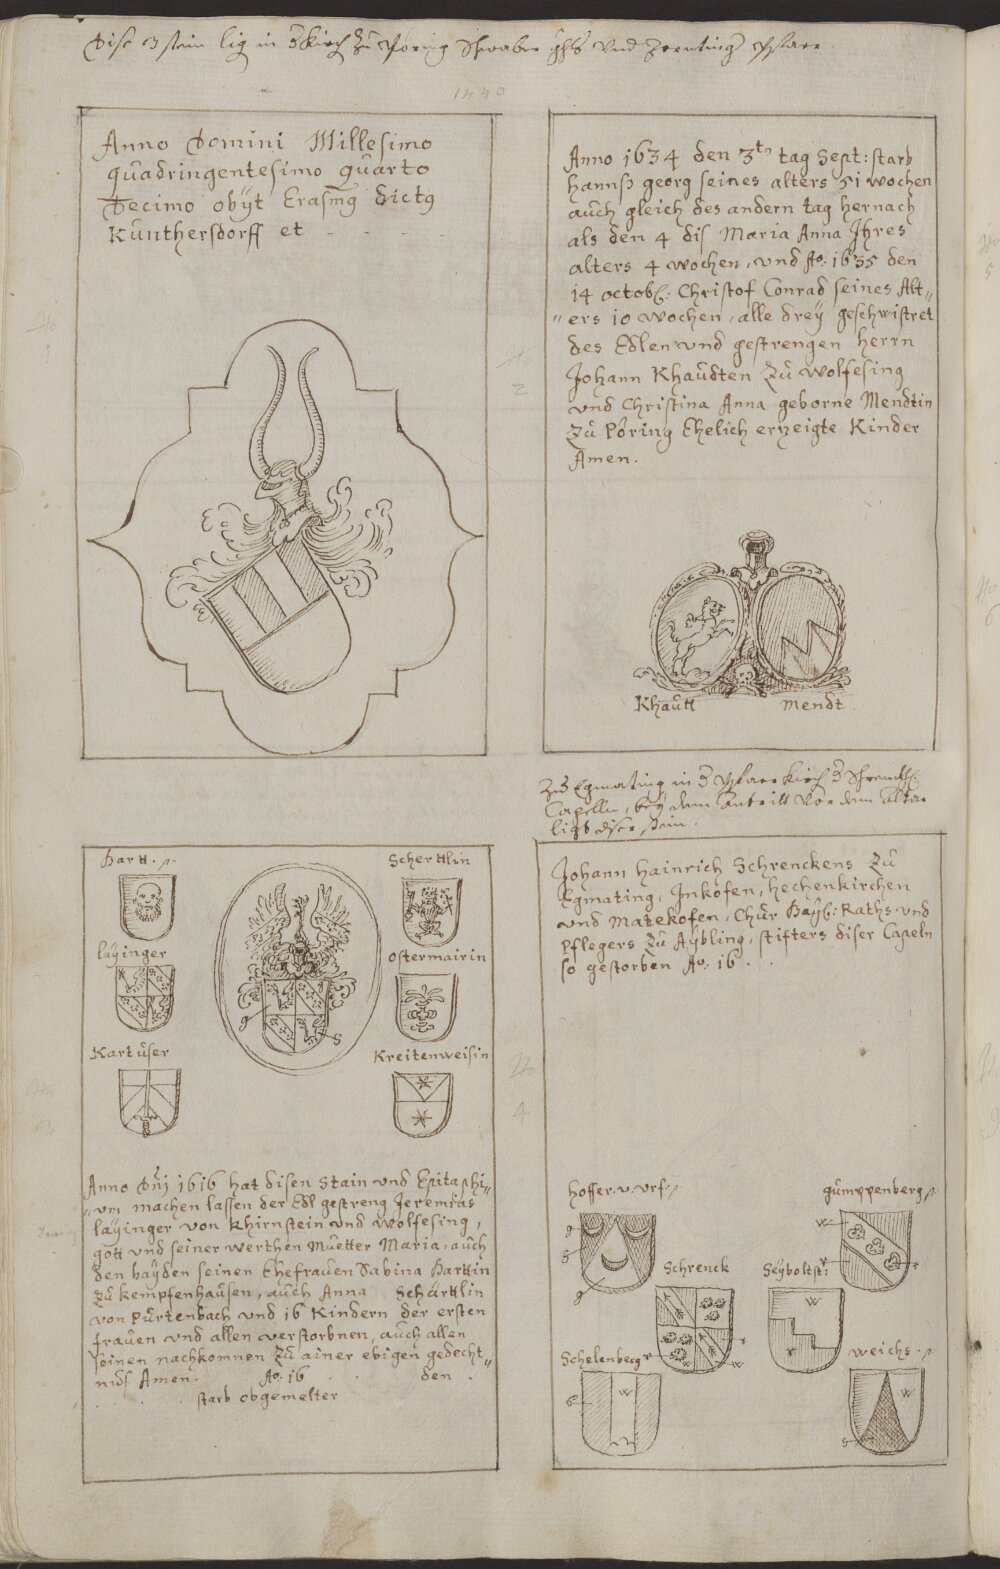 Dise 3 stain lig in d kirch zu Pöring Schwaber ghts und Zornting Pfarr
1440
Anno Domini Millesimo
quadringentesimo quarto
Decimo obÿt Erasmg dictg
Kunthersdorff et
Anno 1634 den 3tn tag Sept: starb
hannß georg seines alters 51 wochen
auch gleich des andern tag hernach
als den 4 dis Maria Anna Jhres
alters 4 wochen, und Ao: 1635 den
14 octob: Christof Conrad seines Alt„
„ers 10 wochen, alle dreÿ geschwistret
des Edlen und gestrengen herrn
Johann Khaudten zu wolfesing
und Christina Anna geborne Mendtin
zu Pöring Ehelich erzeigte Kinder
Amen.
Khautt
Mendt.
Zu Egmating in d Pfarrkirch d Schrenkh:
Capelln, beÿ dem antritt vor dem altar
ligt diser stain.
Hartt.
Scherttlin
laÿinger
ostermairin
Kartuser
Kreitenweisin
g
s
Anno Dnj 1616 hat disen Stain und Epitaphi„
„um machen lassen der Edl gestreng Jeremias
laÿinger von Khirnstein und wolfesing,
gott und seiner werthen Muetter Maria, auch
den baÿden seinen Ehefrauen Sabina Harttin
zu kempfenhausen, auch Anna Schärtlin
von Purtenbach und 16 Kindern der ersten
frauen und allen verstorbnen, auch allen
seinen nachkomnen zu ainer ebigen gedecht„
nuß Amen. Ao: 16 . . den .
. . . . starb obgemelter
Johann Hainrich Schrenckens zu
Egmating, Jnkofen, hechenkirchen
und Matekofen, Chur Baÿl: Raths und
Pflegers zu Aÿbling, stifters diser Capeln
so gestorben Ao: 16 . .
hoffer. v. urf:
gumppenberg
g
s
g
w
r
Schrenck
Seÿboltst:
r
w
w
r
Schelenberg
weichs.
w
w
s